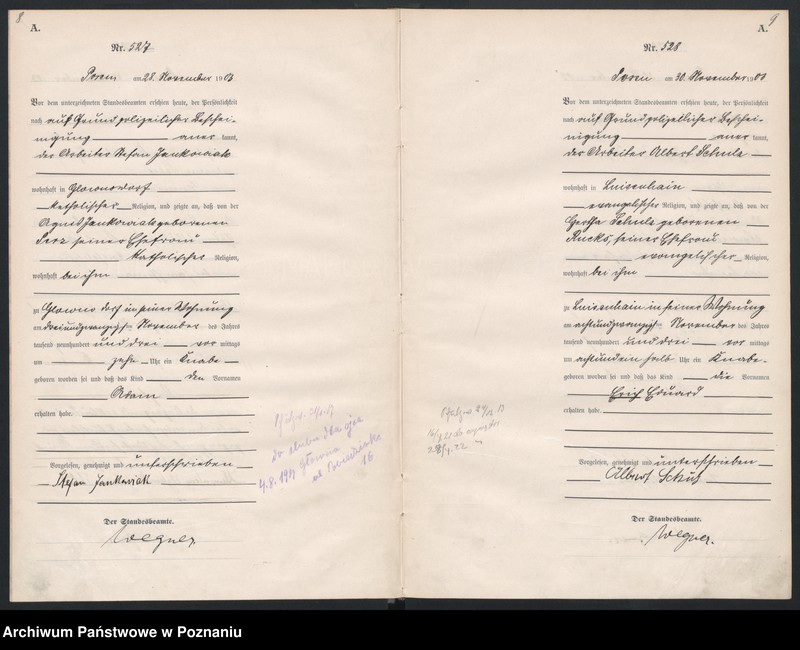 8
A.
Nr. 527
am 28. November 1903
Vor dem unterzeichneten Standesbeamten erschien heute, der Persönlichkeit
nach auf Grund polizeilicher Beschei-
nigung aner kannt,
der Arbeiter Stefan Jankowiak
wohnhaft in Glownodorf
katholischer Religion, und zeigte an, daß von der
Jankowiak geborenen
seiner Ehefrau
katholischer Religion,
wohnhaft bei ihm
zu Glowno dorf in seiner Wohnung
am dreiundzwanzigsten November des Jahres
tausend neunhundert und drei vor mittags
um zehn Uhr ein Knabe
geboren worden sei und daß das Kind den Vornamen
Adam
erhalten habe.
Vorgelesen, genehmigt und unterschrieben
Stefan Jankowiak
Der Standesbeamte.
Wegner
4.8.1919
16
9
A.
Nr. 528
am 30. November 1903
Vor dem unterzeichneten Standesbeamten erschien heute, der Persönlichkeit
nach auf Grund polizeilicher Beschei-
nigung aner kannt,
der Arbeiter Albert
wohnhaft in Luisenhain
evangelischer Religion, und zeigte an, daß von der
geborenen
seiner Ehefrau
evangelischer Religion,
wohnhaft bei ihm
zu Luisenhain in seiner Wohnung
am achtundzwanzigsten November des Jahres
tausend neunhundert und drei vor mittags
um acht und ein halb Uhr ein Knabe
geboren worden sei und daß das Kind die Vornamen
Erich Eduard
erhalten habe.
Vorgelesen, genehmigt und unterschrieben
Albert
Der Standesbeamte.
Wegner.
Archiwum Państwowe w Poznaniu